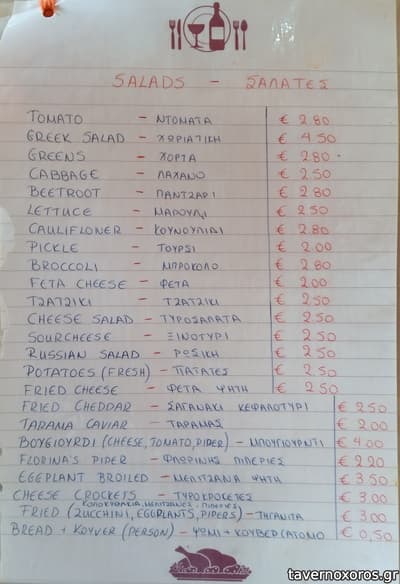 SALADS - ΣΑΛΑΤΕΣ
TOMATO - ΝΤΟΜΑΤΑ € 2.80
GREEK SALAD - ΧΩΡΙΑΤΙΚΗ € 4.50
GREENS - ΧΟΡΤΑ € 2.80
CABBAGE - ΛΑΧΑΝΟ € 2.50
BEETROOT - ΠΑΝΤΖΑΡΙ € 2.80
LETTUCE - ΜΑΡΟΥΛΙ € 2.50
CAULIFLONER - ΚΟΥΝΟΥΠΙΔΙ € 2.80
PICKLE - ΤΟΥΡΣΙ € 2.00
BROCCOLI - ΜΠΡΟΚΟΛΟ € 2.80
FETA CHEESE - ΦΕΤΑ € 2.00
TZATZIKI - ΤΖΑΤΖΙΚΙ € 2.50
CHEESE SALAD - ΤΥΡΟΣΑΛΑΤΑ € 2.50
SOURCHEESE - ΞΙΝΟΤΥΡΙ € 2.50
RUSSIAN SALAD - ΡΩΣΙΚΗ € 2.50
POTATOES (FRESH) - ΠΑΤΑΤΕΣ € 2.50
FRIED CHEESE - ΦΕΤΑ ΨΗΤΗ € 2.50
FRIED CHEDDAR - ΣΑΓΑΝΑΚΙ ΚΕΦΑΛΟΤΥΡΙ € 2.50
TARAMA CAVIAR - ΤΑΡΑΜΑΣ € 2.00
BOUGIOYRDI (CHEESE, TOMATO, PIPER) - ΜΠΟΥΓΙΟΥΡΝΤΙ € 4.00
FLORINA'S PIPER - ΦΛΩΡΙΝΗΣ ΠΙΠΕΡΙΕΣ € 2.20
EGGPLANT BROILED - ΜΕΛΙΤΖΑΝΑ ΨΗΤΗ € 3.50
CHEESE CROCKETS - ΤΥΡΟΚΡΟΚΕΤΕΣ € 3.00
ΚΟΛΟΚΥΘΑΚΙΑ, ΜΕΛΙΤΖΑΝΕΣ, ΠΙΠΕΡΙΕΣ
FRIED (ZUCCHINI, EGGPLANTS, PIPERS) - ΤΗΓΑΝΙΤΑ € 3.00
BREAD + KOYVER (PERSON) - ΨΩΜΙ + ΚΟΥΒΕΡ (ΑΤΟΜΟ) € 0,50
tavernoxoros.gr